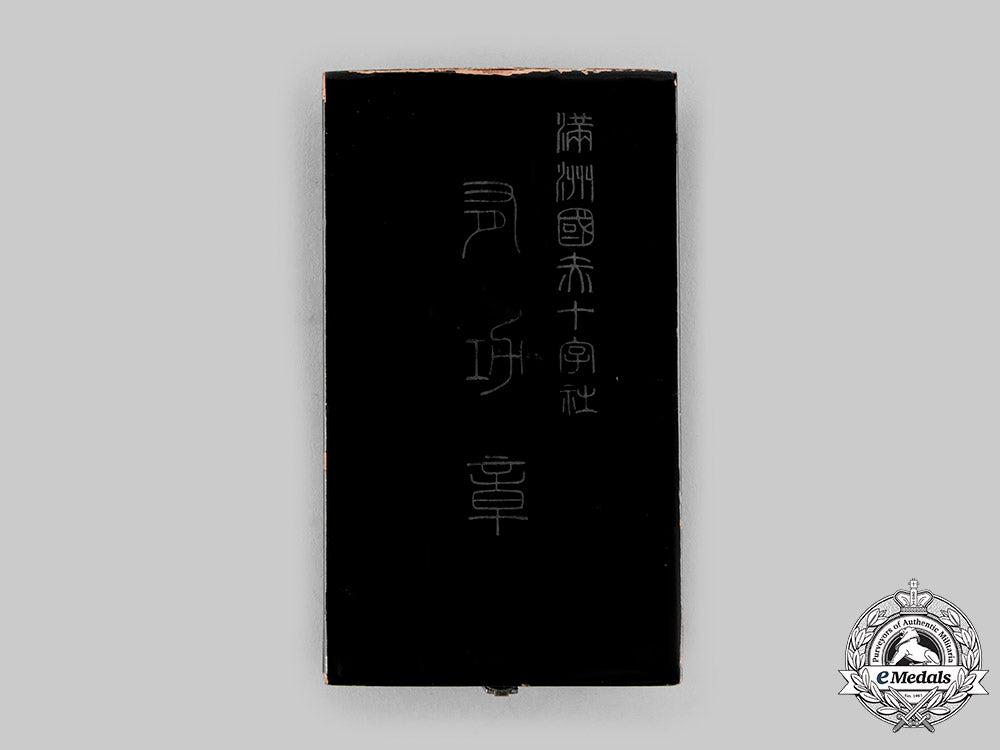 滿洲國赤十字社
有功章
Purveyors of Authentic Militaria
eMedals
Est. 1967